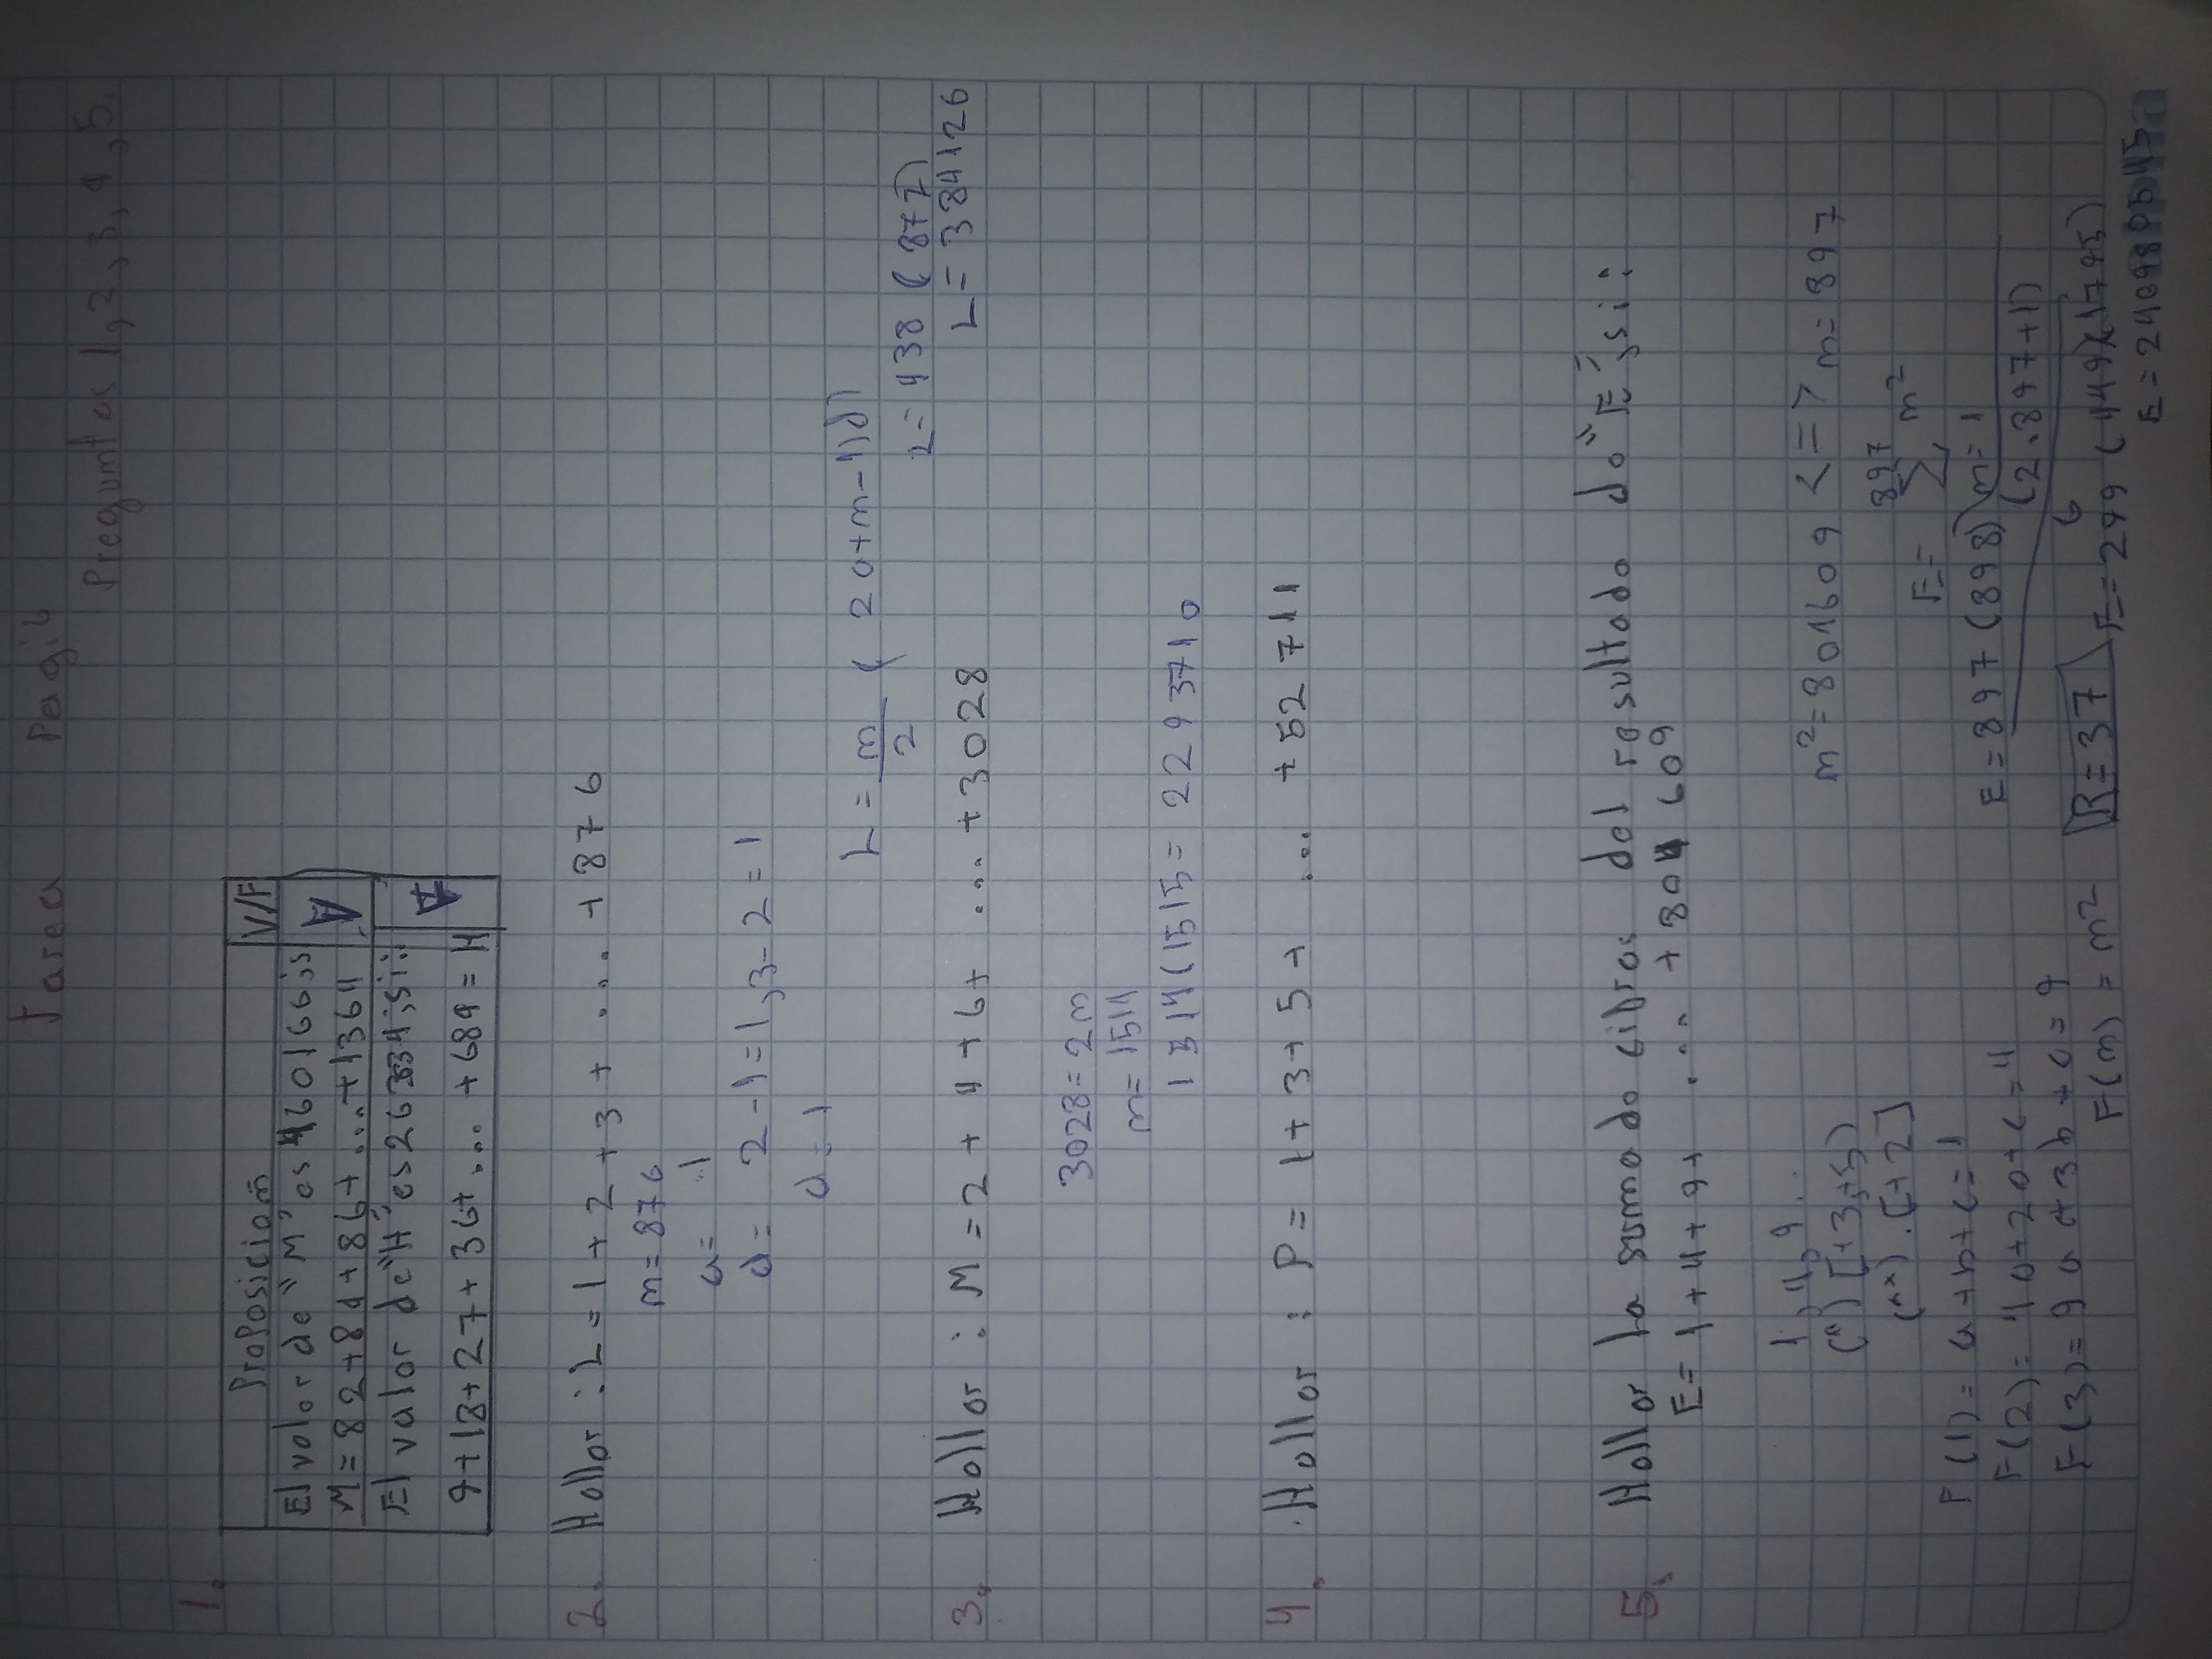 Tarea Pagi4
Preguntas 1, 2, 3, 4, 5.
1.
Proposicion V/F
El valor de "M" es 460166; si
M = 82+84+86+ ... +1364 V
El valor de "H" es 26334; si:
9+18+27+36+ ... +684 = H
2. Hallar : L = 1 + 2 + 3 + ... + 876
m = 876
a = 1
d = 2 - 1 = 1, 3 - 2 = 1
d = 1
L = m/2 ( 2a+m-1)d)
L = 438 (877)
L = 384126
3. Hallar : M = 2 + 4 + 6 + ... + 3028
3028 = 2m
m = 1514
1514(1515 = 2293710
4. Hallar : P = 1 + 3 + 5 + ... + 52 711
5. Hallar La suma de cifras del resultado de "E", si:
E = 1 + 4 + 9 + ... + 804 609
1, 4, 9.
(*) [+3,+5)
(**). [+2]
F(1) = a + b + c = 1
F(2) = 4a+2b+c = 4
F(3) = 9a + 3b + c = 9
F(m) = m²
m² = 804609 <=> m = 897
E = 897 Σ m² m = 1
E = 897 (898) (2.897+1) 6
R = 37
E = 299 (449)(1795)
E = 240980545